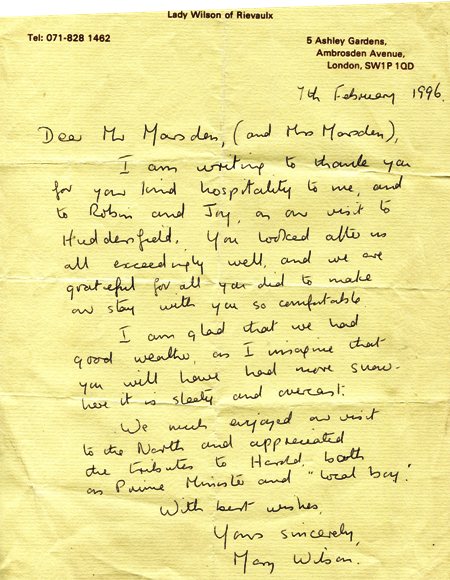 Lady Wilson of Rievaulx
Tel: 071-828 1462
5 Ashley Gardens,
Ambrosden Avenue,
London, SW1P 1QD
7th February 1996.
Dear Mr Marsden, (and Mrs Marsden),
I am writing to thank you
for your kind hospitality to me, and
to Robin and Joy, on our visit to
Huddersfield. You looked after us
all exceedingly well, and we are
grateful for all you did to make
our stay with you so comfortable.
I am glad that we had
good weather, as I imagine that
you will have had more snow -
here it is sleety and overcast.
We much enjoyed our visit
to the North and appreciated
the tributes to Harold, both
as Prime Minister and "local boy".
With best wishes,
Yours sincerely,
Mary Wilson.